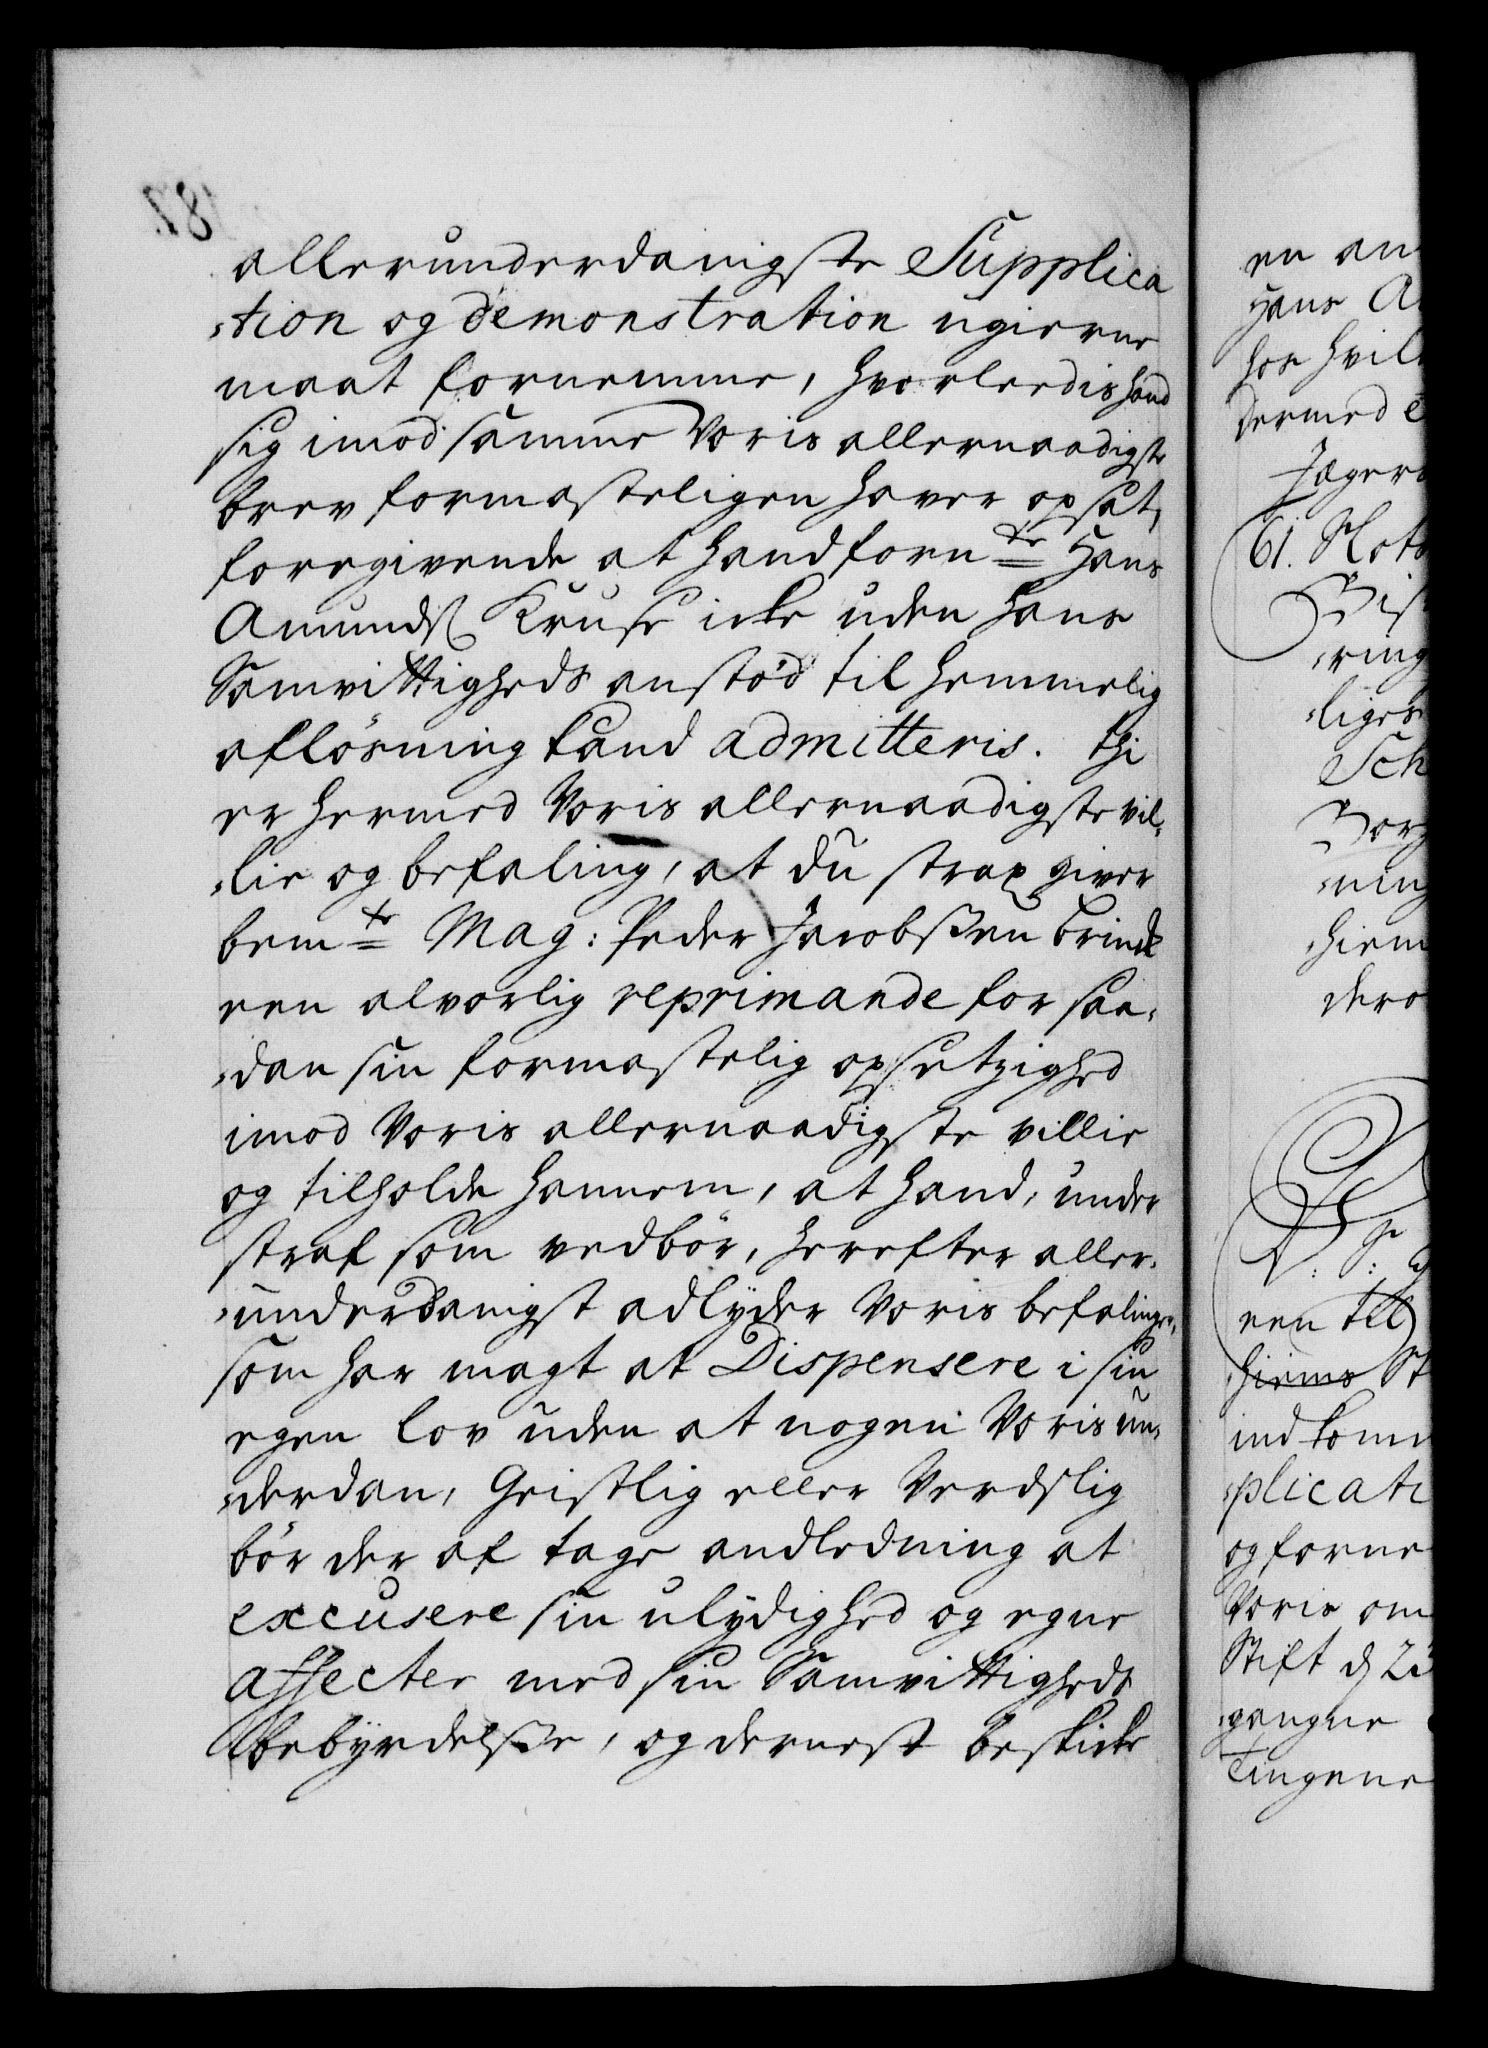 allerunderdanigste Supplica
-tion og demonstration ugierne
maat fornemme, hvorledis hand
sig imod samme Voris allernaadigste
brev formasteligen haver opsat,
foregivende at hand fornte Hans
Amunds: Kruse icke uden hans
Samvittigheds anstød til hemmelig
afløsning kand admitteris. thi
er hermed Voris allernaadigste vil-
-lie og befaling, at du strax giver
bemte Mag: Peder Jacobssen Brinck
een alvorlig reprimande for saa-
-dan sin formastelig opsetzighed
imod Voris allernaadigste villie
og tilholde hannem, at hand, under
straf som vedbør, herefter aller-
-underdanigst adlyder Voris befalinger,
som har magt at Dispensere i sin
egen lov uden at nogen Voris un-
-derdan, Geistlig eller Verdslig
bør der af tage andledning at
excusere sin ulydighed og egne
affecter med sin Samvittigheds
bebyrdelsse, og dernest beskicke
en an
Hans A
hos hvil
dermed
Jægers
61. Slots
-ring
-liges
Sch
Borg
-ning
-hiem
dero
V: S: G
een til
hiems St
indkom
-plicati
og forne
Voris om
Stift d 23
-gangne
Tingene